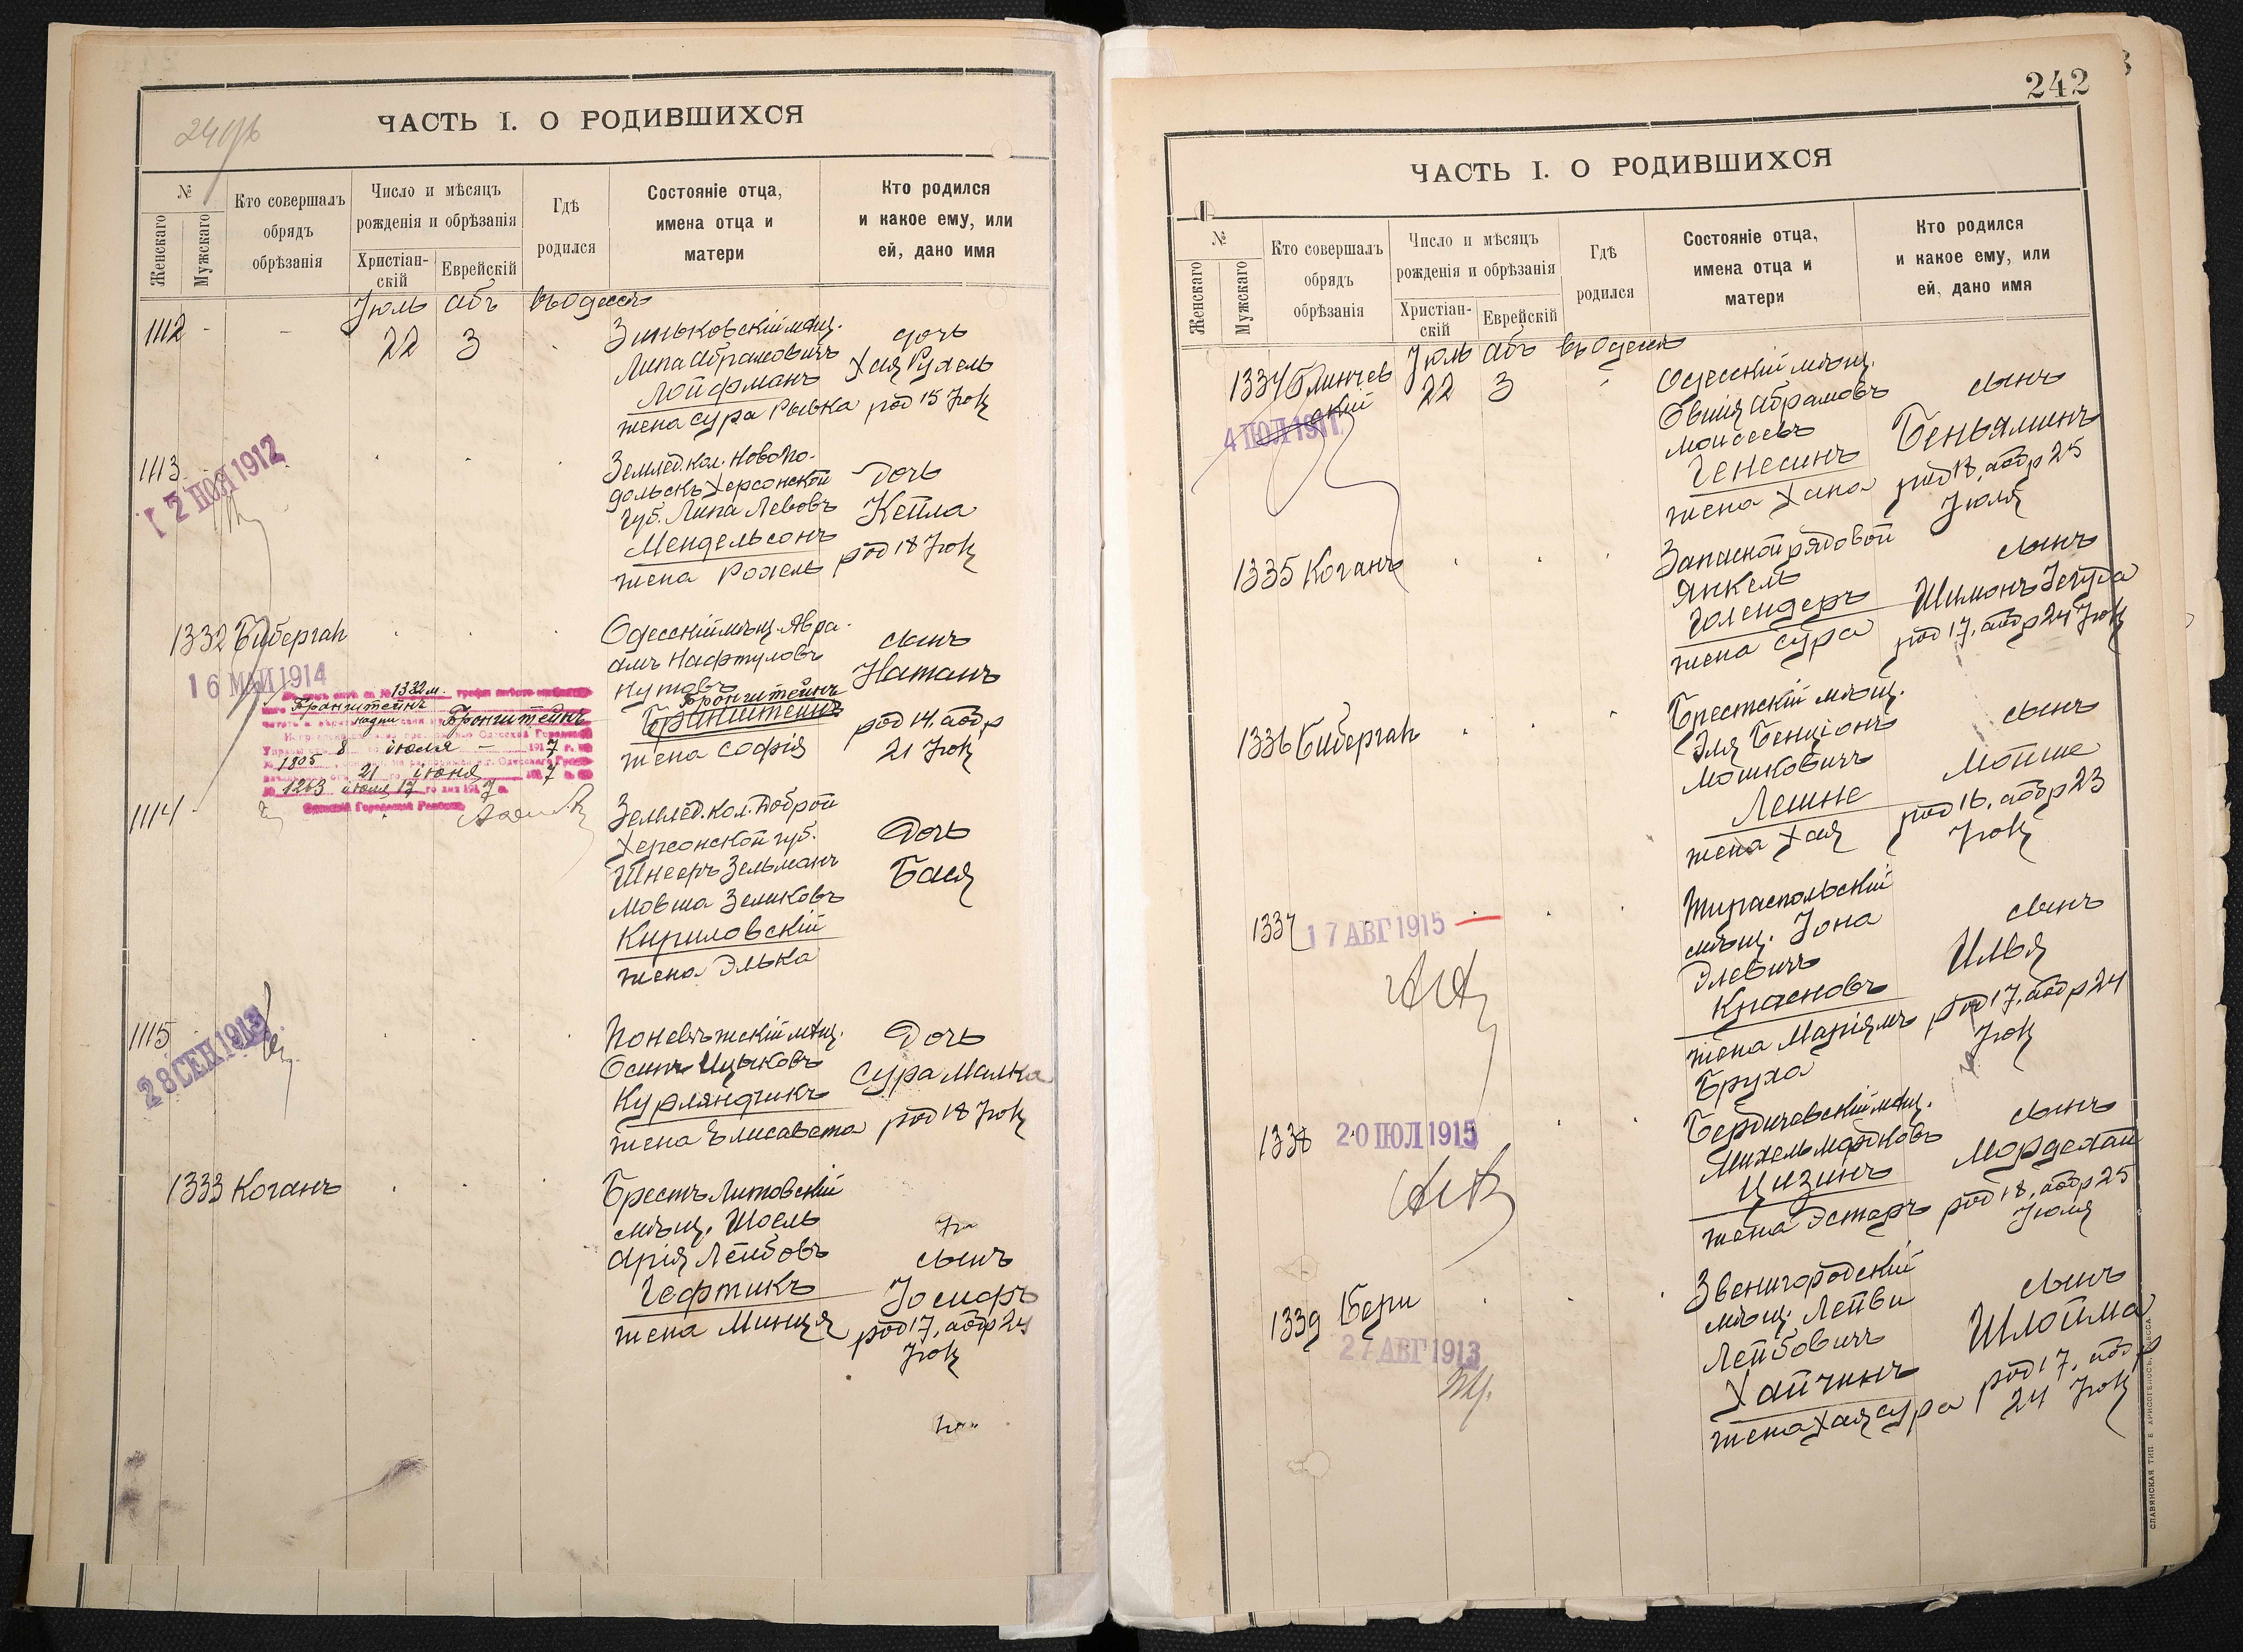 ЧАСТЬ I. О РОДИВШИХСЯ
№
Женскаго
Мужскаго
Кто совершалъ
обрядъ
обрѣзанія
Число и мѣсяцъ
рожденія и обрѣзанія
Христіан-
скій
Еврейскій
Гдѣ
родился
Состояніе отца,
имена отца и
матери
Кто родился
и какое ему, или
ей, дано имя
Іюль Абъ въ Одессѣ
1112 - - 22 3
Зиньковскій мѣщ.
Липа Абрамовичъ
Лойфманъ
жена Сура Рывка
дочь
Хая Рухель
род 15 Іюля
1113
12 НОЯ 1912
Землед. кол. Новопо-
дольскъ Херсонской
губ. Липа Левовъ
Мендельсонъ
жена Рохель
Дочь
Кейла
род 18 Іюля
1332 Биберган
16 МАЙ 1914
1332 м.
Бронштейнъ
Бронштейнъ
8 іюля 1917 г.
1805 21 іюня 1917
1263 іюля 17 го дня 1917 г.
Одесскій Городской Раввинъ
Одесскій мѣщ. Авра-
амъ Нафтуловъ
Нутовъ
Бронштейнъ
жена Софія
сынъ
Натанъ
род 14, аобр
21 Іюля
1114
Землед. кол. Доброй
Херсонской губ.
Шнееръ Зельманъ
Мовша Зеликовъ
Кириловскій
жена Элька
Дочь
Бася
1115
28 СЕН 1913
Поневѣжскій мѣщ.
Осипъ Ицыковъ
Курляндчикъ
жена Елисавета
Дочь
Сура Малка
род 18 Іюля
1333 Коганъ
Брестъ Литовскій
мѣщ. Шоель
Арія Лейбовъ
Гефтикъ
жена Минця
сынъ
Іосифъ
род 17, аобр 24
Іюля
242
ЧАСТЬ I. О РОДИВШИХСЯ
№
Женскаго
Мужскаго
Кто совершалъ
обрядъ
обрѣзанія
Число и мѣсяцъ
рожденія и обрѣзанія
Христіан-
скій
Еврейскій
Гдѣ
родился
Состояніе отца,
имена отца и
матери
Кто родился
и какое ему, или
ей, дано имя
Іюль Абъ въ Одессѣ
1334 Блинчев
ский
22 3
4 ИЮЛ 1911
Одесскій мѣщ.
Овшія Абрамовъ
Моисеевъ
Генесинъ
жена Хана
сынъ
Беньяминъ
род 18, аобр 25
Іюля
1335 Коганъ
Запасной рядовой
Янкель
Голендеръ
жена Сура
сынъ
Шимонъ Іегуда
род 17, аобр 24 Іюля
1336 Биберган
Брестскій мѣщ.
Эля Бенціонъ
Мошковичъ
Лешне
жена Хая
сынъ
Мойше
род 16, аобр 23
Іюля
1337
17 АВГ 1915
Тираспольскій
мѣщ. Іона
Элевичъ
Красновъ
жена Маріямъ
Бруха
сынъ
Илья
род 17, аобр 24
Іюля
1338
20 ИЮЛ 1915
Бердичевскій мѣщ.
Михель Мордковъ
Цизинъ
жена Эстеръ
сынъ
Мордехай
род 18, аобр 25
Іюля
1339 Бери
27 АВГ 1913
Звенигородскій
мѣщ. Лейви
Лейбовичъ
Хайчинъ
жена Хая Сура
сынъ
Шлойма
род 17, аобр
24 Іюля